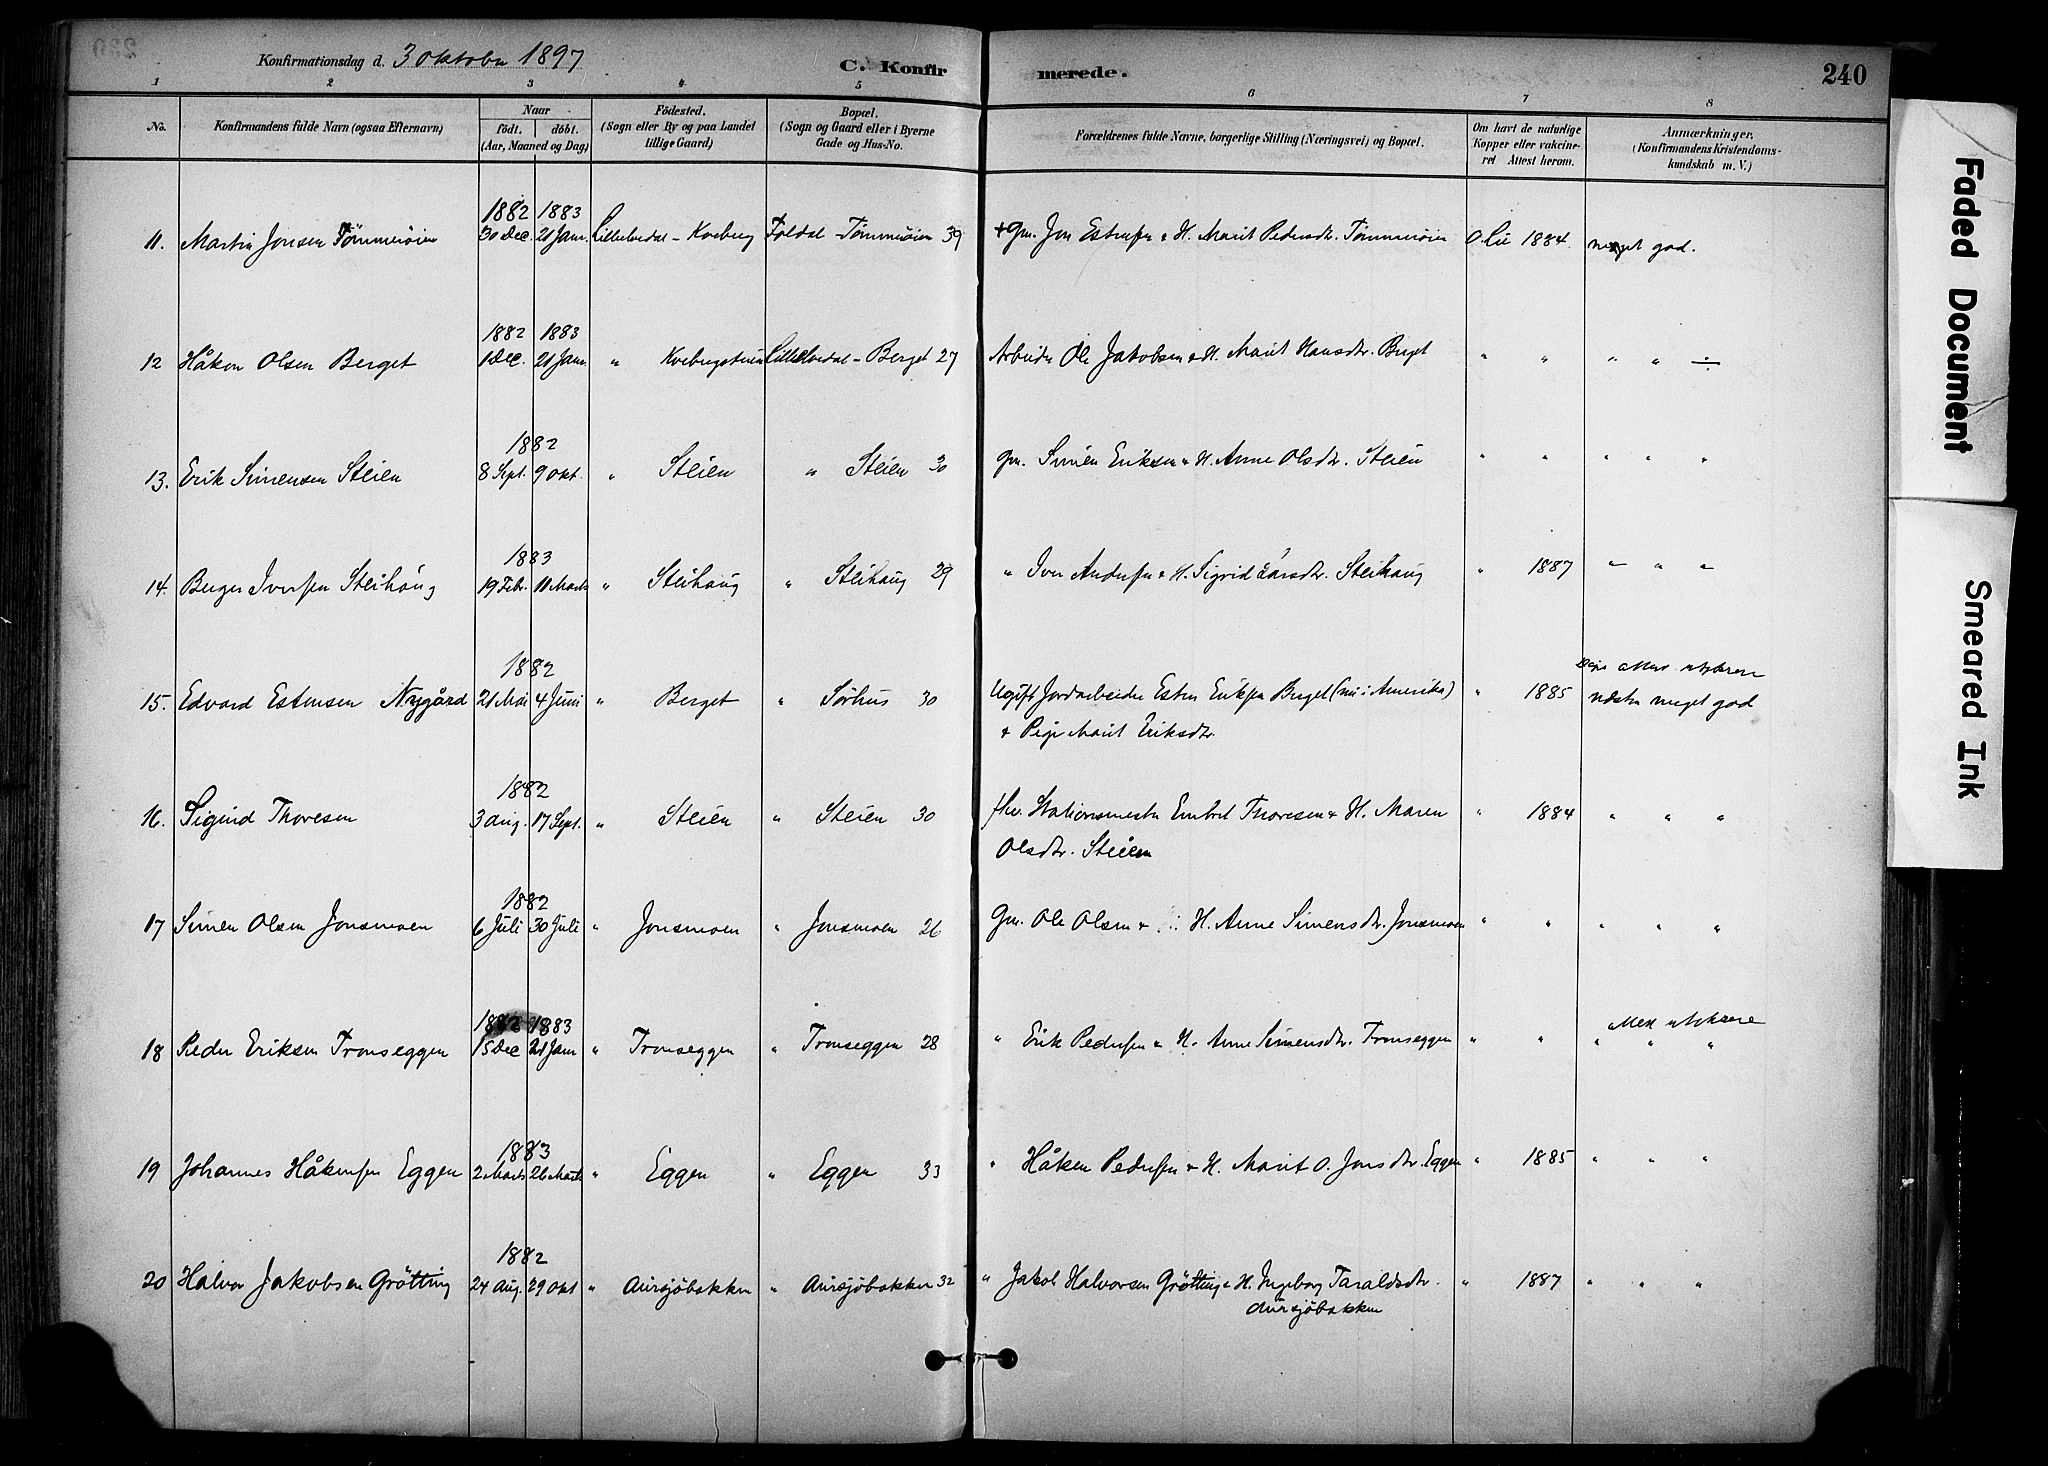 Konfirmationsdag d. 3 oktober 1897 C. Konfirmerede. 240
1 2 3 4 5 6 7 8
No. Konfirmandens fulde Navn (ogsaa Efternavn) Naar født. døbt. (Aar, Maaned og Dag) Fødested. (Sogn eller By og paa Landet tillige Gaard) Bopæl. (Sogn og Gaard eller i Byerne Gade og Hus-No. Forældrenes fulde Navne, borgerlige Stilling (Næringsvei) og Bopæl. Om havt de naturlige Kopper eller vakcineret Attest herom. Anmærkninger. (Konfirmandens Kristendomskundskab m. V.)
1882 1883
11. Martin Jonsen Tømmerøien 30 Dec. 21 Janr. Lilleelvedal - Kveberg Foldal - Tømmerøien 39 + Gm. Jon Estensen & H. Marit Pedersdtr. Tømmerøien 1884. meget god.
1882 1883
12 Håkon Olsen Berget 1 Dec. 21 Janr. " Lilleelvedal - Berget 27 Arbeider Ole Jakobsen & H. Marit Hansdtr. Berget " " " " ÷
1882
13. Erik Simensen Steien 8 Sept. 9 okt. " Steien " Steien 30 Gm. Simen Eriksen & H. Anne Olsdtr. Steien " " " " "
1883
14. Berger Iversen Steihaug 19 Febr. 11 Marts " Steihaug " Steihaug 29 " Iver Andersen & H. Sigrid Larsdtr. Steihaug " 1887 " " "
1882
15. Edvard Estensen Nygård 21 Mai 4 Juni " Berget " Sørhus 30 Ugift Jordarbeider Esten Eriksen Berget (nu i Amerika) " 1885 næsten meget god
& Pige Marit Eriksdtr.
1882
16. Sigurd Thoresen 3 aug. 17 Sept. " Steien " Steien 30 fhv. Stationsmester Embret Thoresen & H. Maren " 1884 " " "
Olsdtr. Steien
1882
17 Simen Olsen Jonsmoen 6 Juli 30 Juli " Jonsmoen " Jonsmoen 26 Gm. Ole Olsen & H. Anne Simensdtr. Jonsmoen " " " " "
1882 1883
18 Peder Eriksen Tronseggen 15 Dec 21 Janr " Tronseggen " Tronseggen 28 " Erik Pedersen & H. Anne Simensdtr. Tronseggen " " " " "
1883
19 Johannes Håkensen Eggen 2 Marts 26 Marts " Eggen " Eggen 33 " Håken Pedersen & H. Marit O. Jonsdtr. Eggen " 1885 " " "
1882
20 Halvor Jakobsen Grötting 24 Aug. 29 okt " Aursjöbakken " Aursjöbakken 32 " Jakob Halvorsen Grötting & H. Ingeborg Taraldsdtr. " 1887 " " "
Aursjöbakken
Faded Document
Smeared Ink